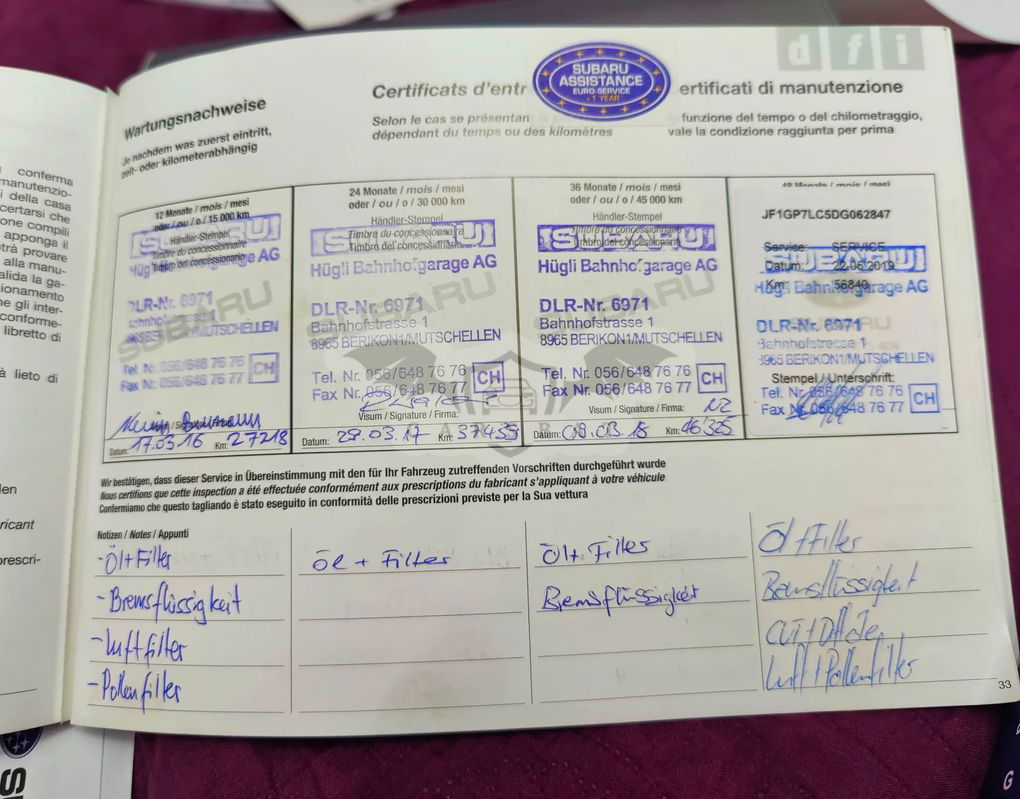 d f i
SUBARU
ASSISTANCE
EURO-SERVICE
1 YEAR
Wartungsnachweise
Certificats d'entr
ertificati di manutenzione
Je nachdem was zuerst eintritt,
zeit- oder kilometerabhängig
Selon le cas se présentan
dépendant du temps ou des kilomètres
funzione del tempo o del chilometraggio,
vale la condizione raggiunta per prima
conferma
manutenzio-
i della casa
certarsi che
one compili
apponga il
trà provare
alla manu-
alida la ga-
ionamento
e gli inter-
conforme-
libretto di
à lieto di
len
ricant
prescri-
12 Monate / mois / mesi
oder / ou / o / 15 000 km
SUBARU
Händler-Stempel
Timbre du concessionnaire
Timbro del concessionario
Hügli AG
DLR-Nr. 6971
Bahnhofstrasse 1
MUTSCHELLEN
Tel. Nr. 056/648 76 76
Fax Nr. 056/648 76 77
CH
/ Signature /
Datum: 17.03.16 Km: 27218
24 Monate / mois / mesi
oder / ou / o / 30 000 km
Händler-Stempel
SUBARU
Timbre du concessionnaire
Timbro del concessionario
Hügli Bahnhofgarage AG
DLR-Nr. 6971
Bahnhofstrasse 1
8965 BERIKON1/MUTSCHELLEN
Tel. Nr. 056/648 76 76
Fax Nr. 056/648 76 77
CH
Visum / Signature / Firma:
Datum: 29.03.17 Km: 37435
36 Monate / mois / mesi
oder / ou / o / 45 000 km
Händler-Stempel
SUBARU
Timbre du concessionnaire
Timbro del concessionario
Hügli Bahnhofgarage AG
DLR-Nr. 6971
Bahnhofstrasse 1
8965 BERIKON1/MUTSCHELLEN
Tel. Nr. 056/648 76 76
Fax Nr. 056/648 76 77
CH
Visum / Signature / Firma:
Datum: 09.03.18 Km: 46325
Monate / mois / mesi
JF1GP7LC5DG062847
Service: SERVICE
SUBARU
Datum: 22.05.2019
Km: 56840
Hügli Bahnhofgarage AG
DLR-Nr. 6971
Bahnhofstrasse 1
8965 BERIKON1/MUTSCHELLEN
Stempel / Unterschrift:
Tel. Nr. 056/648 76 76
Fax Nr. 056/648 76 77
CH
SUBARU
SUBARU
Wir bestätigen, dass dieser Service in Übereinstimmung mit den für Ihr Fahrzeug zutreffenden Vorschriften durchgeführt wurde
Nous certifions que cette inspection a été effectuée conformément aux prescriptions du fabricant s'appliquant à votre véhicule
Confermiamo che questo tagliando è stato eseguito in conformità delle prescrizioni previste per la Sua vettura
Notizen / Notes / Appunti
- Öl+Filter
- Bremsflüssigkeit
- Luftfilter
- Pollenfilter
Öl + Filter
Öl + Filter
Bremsflüssigkeit
Öl + Filter
Bremsflüssigkeit
Luft / Pollenfilter
33
G